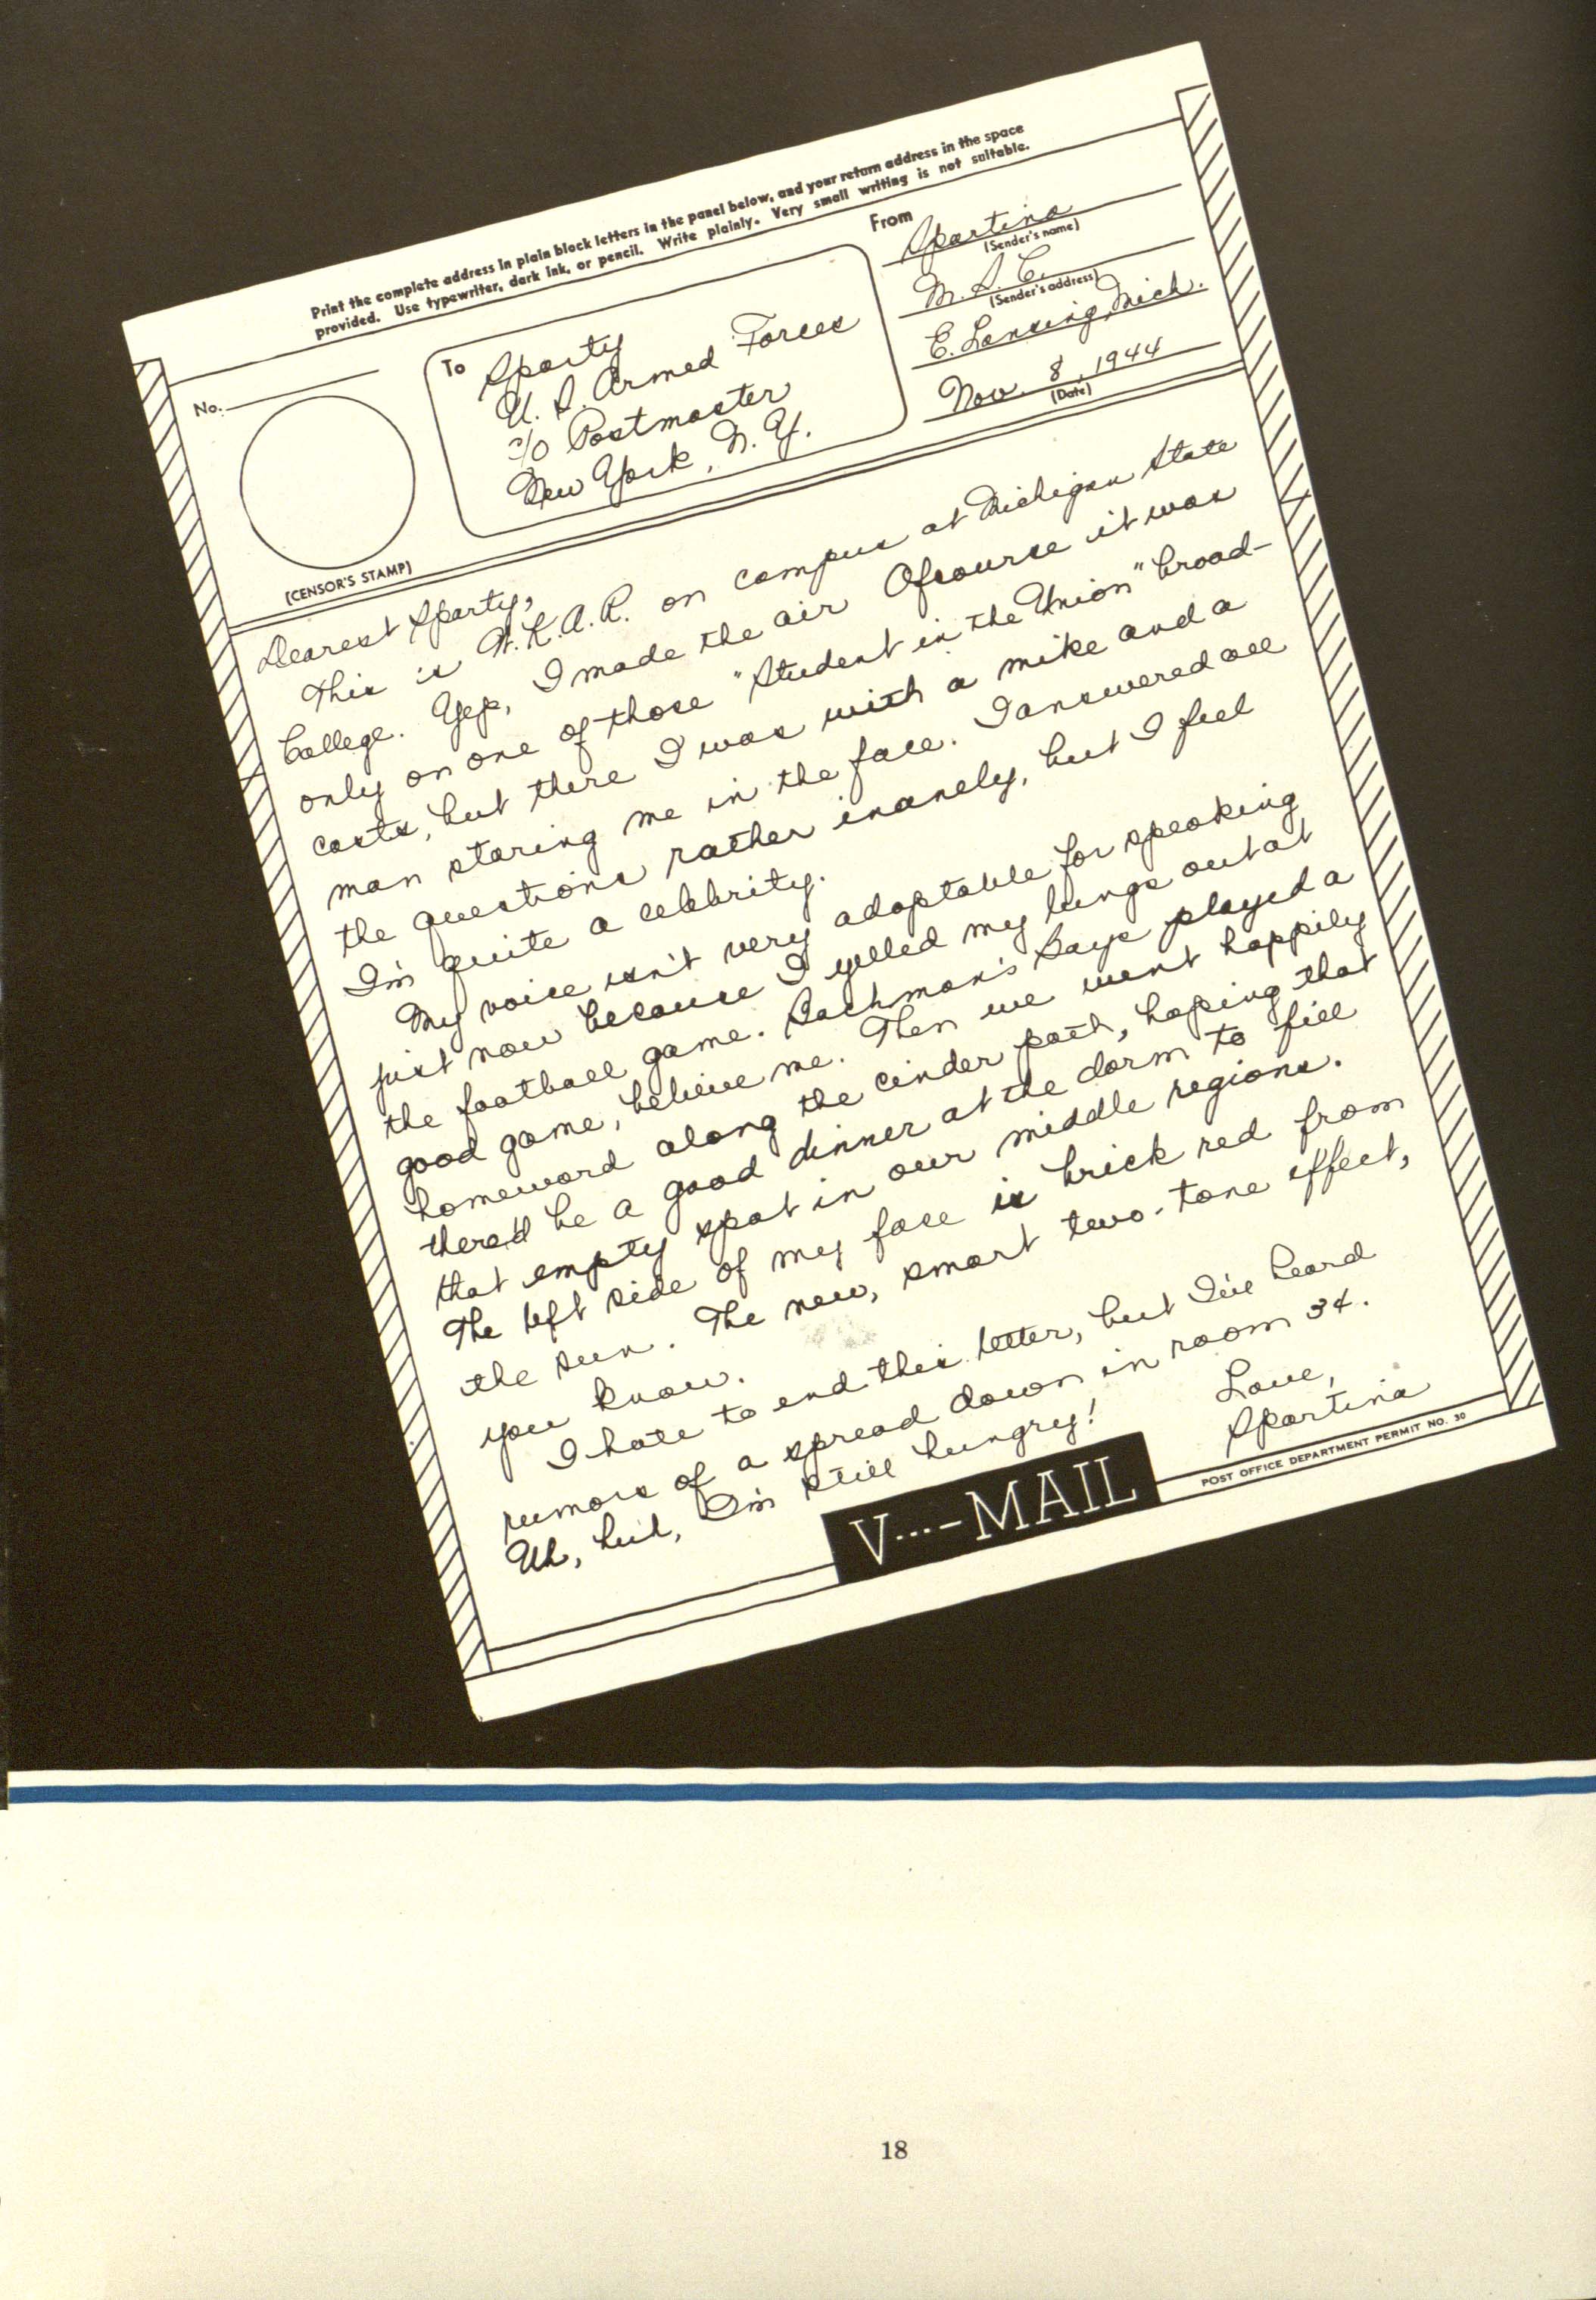 Print the complete address in plain block letters in the panel below, and your return address in the space
provided. Use typewriter, dark ink, or pencil. Write plainly. Very small writing is not suitable.
No.
(CENSOR'S STAMP)
To
Sparty
U. S. Armed Forces
c/o Postmaster
New York, N. Y.
From
Spartina
(Sender's name)
M. S. C.
(Sender's address)
E. Lansing, Mich.
Nov. 8, 1944
(Date)
Dearest Sparty,
This is W.K.A.R. on campus at Michigan State
College. Yep, I made the air Ofcourse it was
only on one of those "Student in the Union" broad-
casts, but there I was with a mike and a
man staring me in the face. I answered all
the questions rather inanely, but I feel
I'm quite a celebrity.
My voice isn't very adaptable for speaking
just now because I yelled my lungs out at
the football game. Bachman's Boys played a
good game, believe me. Then we went happily
homeward along the cinder path, hoping that
there'd be a good dinner at the dorm to fill
that empty spot in our middle regions.
The left side of my face is brick red from
the sun. The new, smart two-tone effect,
you know.
I hate to end this letter, but I've heard
rumors of a spread down in room 34.
Uh, huh, I'm still hungry!
Love,
Spartina
V···–MAIL
POST OFFICE DEPARTMENT PERMIT NO. 30
18